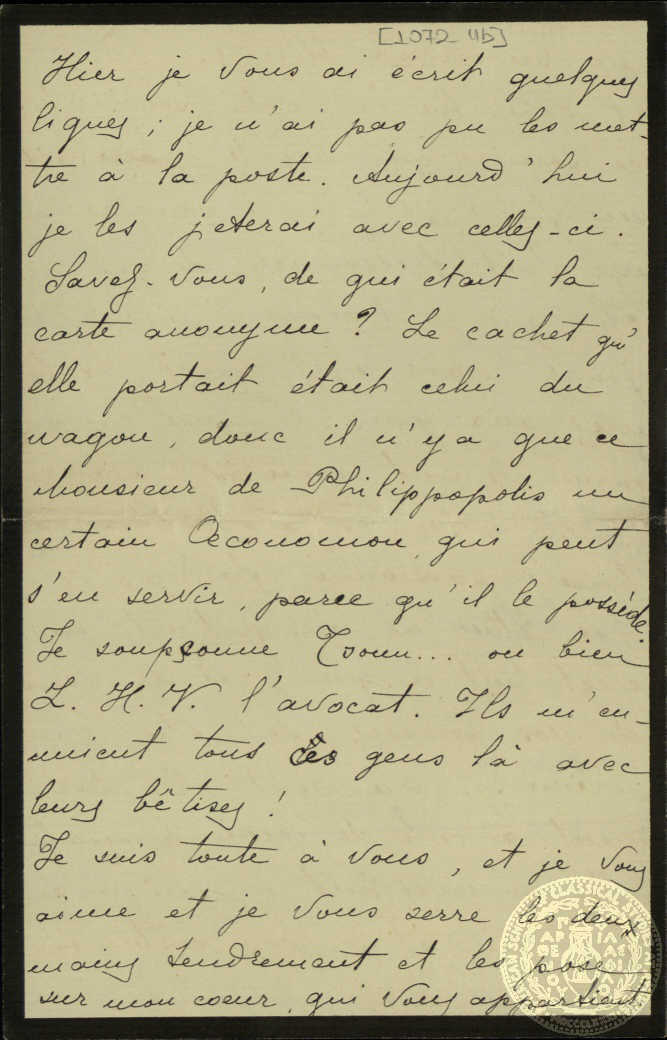 [1072 4b]
Hier je vous ai écrit quelques
lignes ; je n'ai pas pu les met-
tre à la poste. Aujourd'hui
je les jeterai avec celles-ci.
Savez-vous, de qui était la
carte anonyme ? Le cachet qu'
elle portait était celui du
wagon, donc il n'y a que ce
monsieur de Philippopolis un
certain Oeconomou, qui peut
s'en servir, parce qu'il le possède
Je soupçonne Tsoun... ou bien
L. H. V. l'avocat. Ils m'en-
nuient tous ces gens là avec
leurs bêtises !
Je suis toute à vous, et je vous
aime et je vous serre les deux
mains tendrement et les pose
sur mon coeur, qui vous appartient.